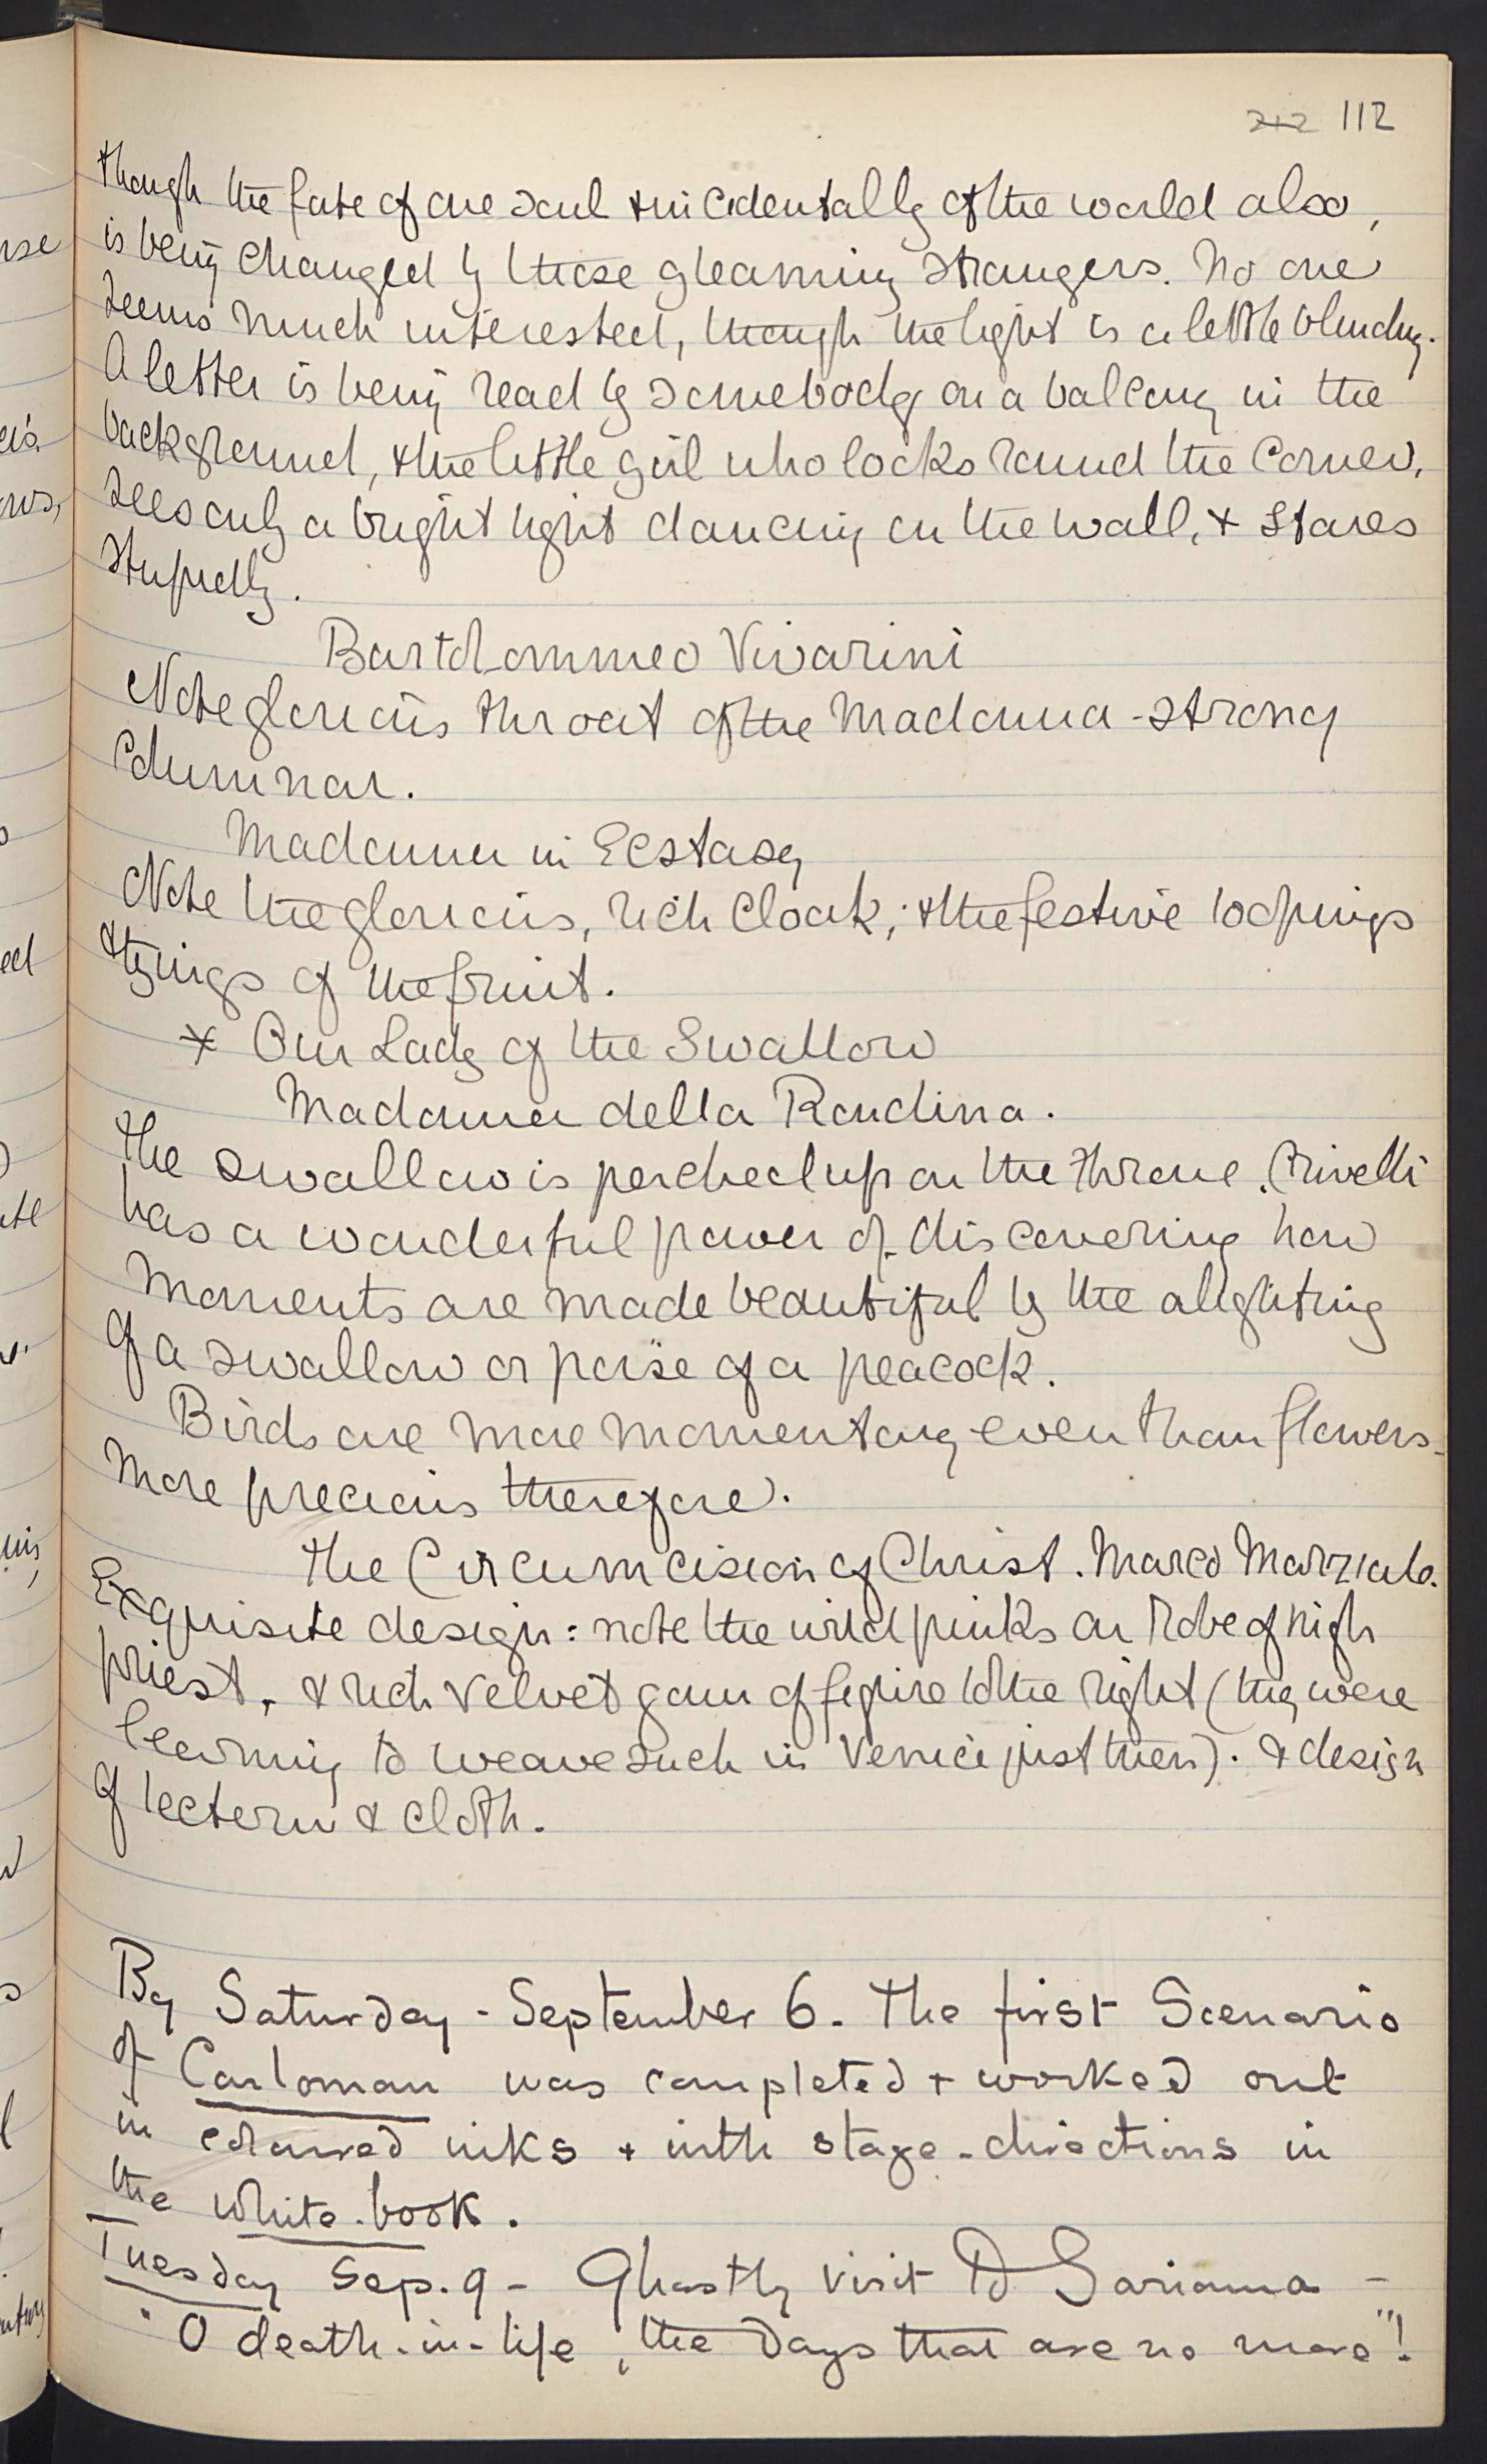 212 112
though the fate of one soul & incidentally of the world also,
is being changed by these gleaming strangers. No one
seems much interested, though the light is a little blinding.
A letter is being read by somebody on a balcony in the
background, & the little girl who looks round the corner,
sees only a bright light dancing on the wall, & stares
stupidly.
Bartolommeo Vivarini
Note glorious throat of the Madonna - strong
columnar.
Madonna in Ecstasy
Note the glorious, rich cloak, & the festive loopings
& tyings of the fruit.
* Our Lady of the Swallow
Madonna della Rondina.
The swallow is perched up on the throne. Crivelli
has a wonderful power of discovering how
moments are made beautiful by the alighting
of a swallow or poise of a peacock.
Birds are more momentary even than flowers -
more precious therefore.
The Circumcision of Christ. Marco Marziale.
Exquisite design: note the wild pinks on robe of high
priest, & rich velvet gown of figure to the right (they were
learning to weave such in Venice just then). & design
of lectern & cloth.
By Saturday - September 6. The first Scenario
of Carloman was completed + worked out
in coloured inks + with stage-directions in
the white-book.
Tuesday Sep. 9 - Ghastly visit to Sarianna -
"O death-in-life, the days that are no more"!